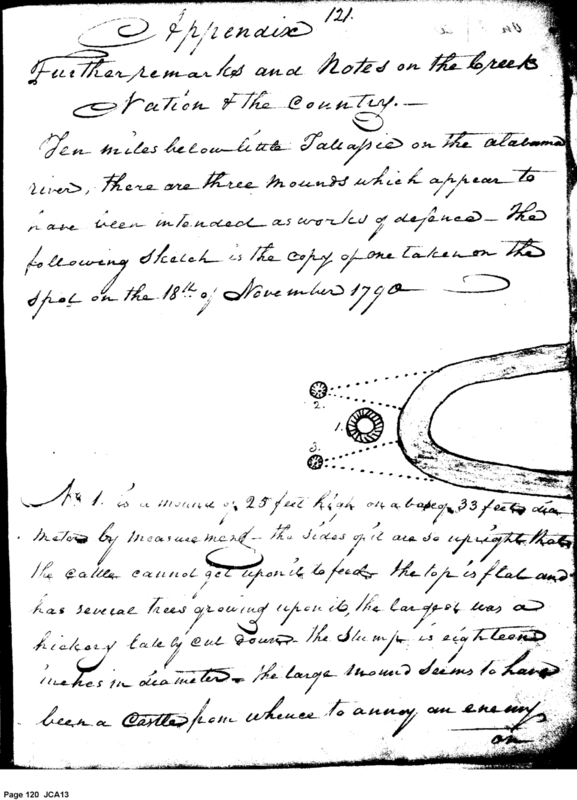 121.
Appendix
Further remarks and Notes on the Creek
Nation & the Country.—
Ten miles below little Tallassie on the alabama
river, there are three mounds which appear to
have been intended as works of defence — The
following Sketch is the copy of one taken on the
spot on the 18th of November 1790
2.
1.
3.
No 1. is a mound of 25 feet high on a base of 33 feet dia
meter by measurement — the sides of it are so upright that
the cattle cannot get upon it to feed the top is flat and
has several trees growing upon it, the largest was a
hickory lately cut down — the stump is eighteen
inches in diameter — the large mound seems to have
been a Castle from whence to annoy an enemy
on
Page 120 JCA13